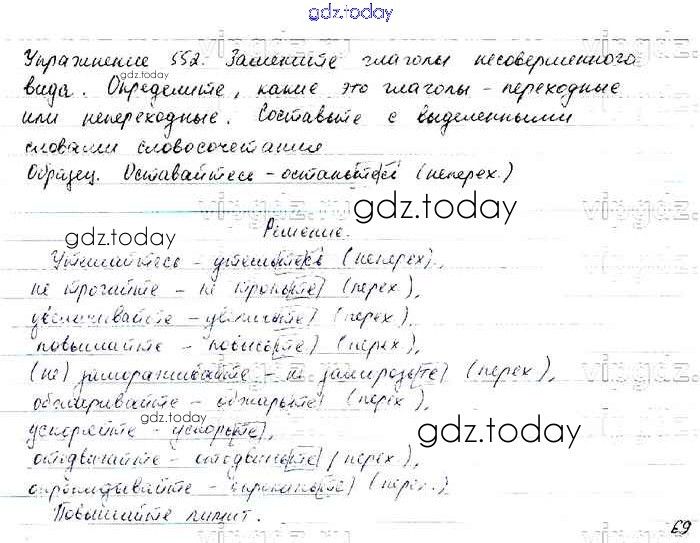 gdz.today
Упражнение 552. Замените глаголы несовершенного
вида. Определите, какие это глаголы - переходные
gdz.today
или непереходные. Составьте с выделенными
словами словосочетания
Образец. Оставайтесь - останьтесь (неперех.)
gdz.today
gdz.today
Решение.
Утешайтесь - утешьтесь (неперех).,
не трогайте - не троньте (перех.),
увеличивайте - увеличьте (перех.)
повышайте - повысьте (перех.),
(не) замораживайте - не заморозьте (перех.),
обжаривайте - обжарьте (перех.),
gdz.today
gdz.today
ускоряйте - ускорьте,
отодвигайте - отодвиньте (перех.),
опрокидывайте - опрокиньте (перех.)
Повышайте лимит.
69